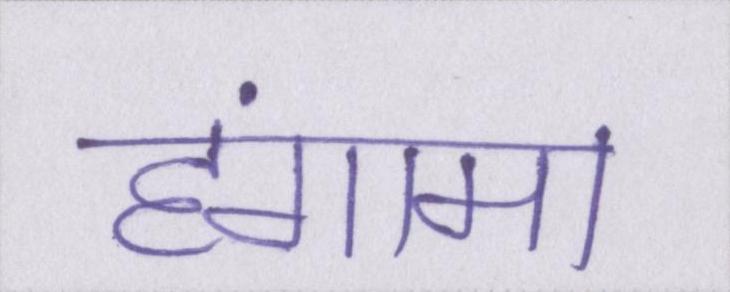 हंगामा